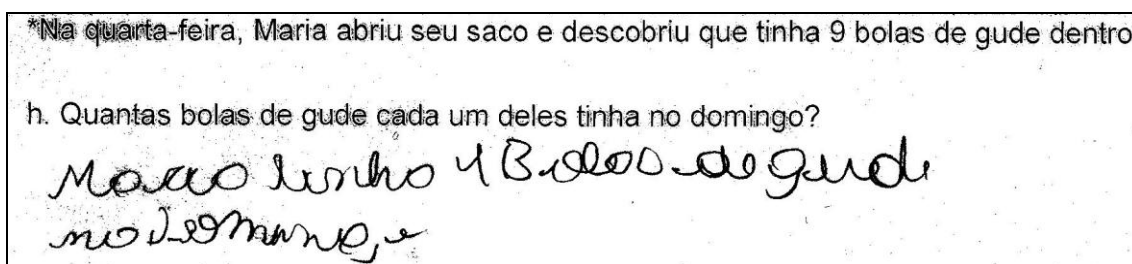 *Na quarta-feira, Maria abriu seu saco e descobriu que tinha 9 bolas de gude dentro
h. Quantas bolas de gude cada um deles tinha no domingo?
tinha 4 Bolas de gude
no